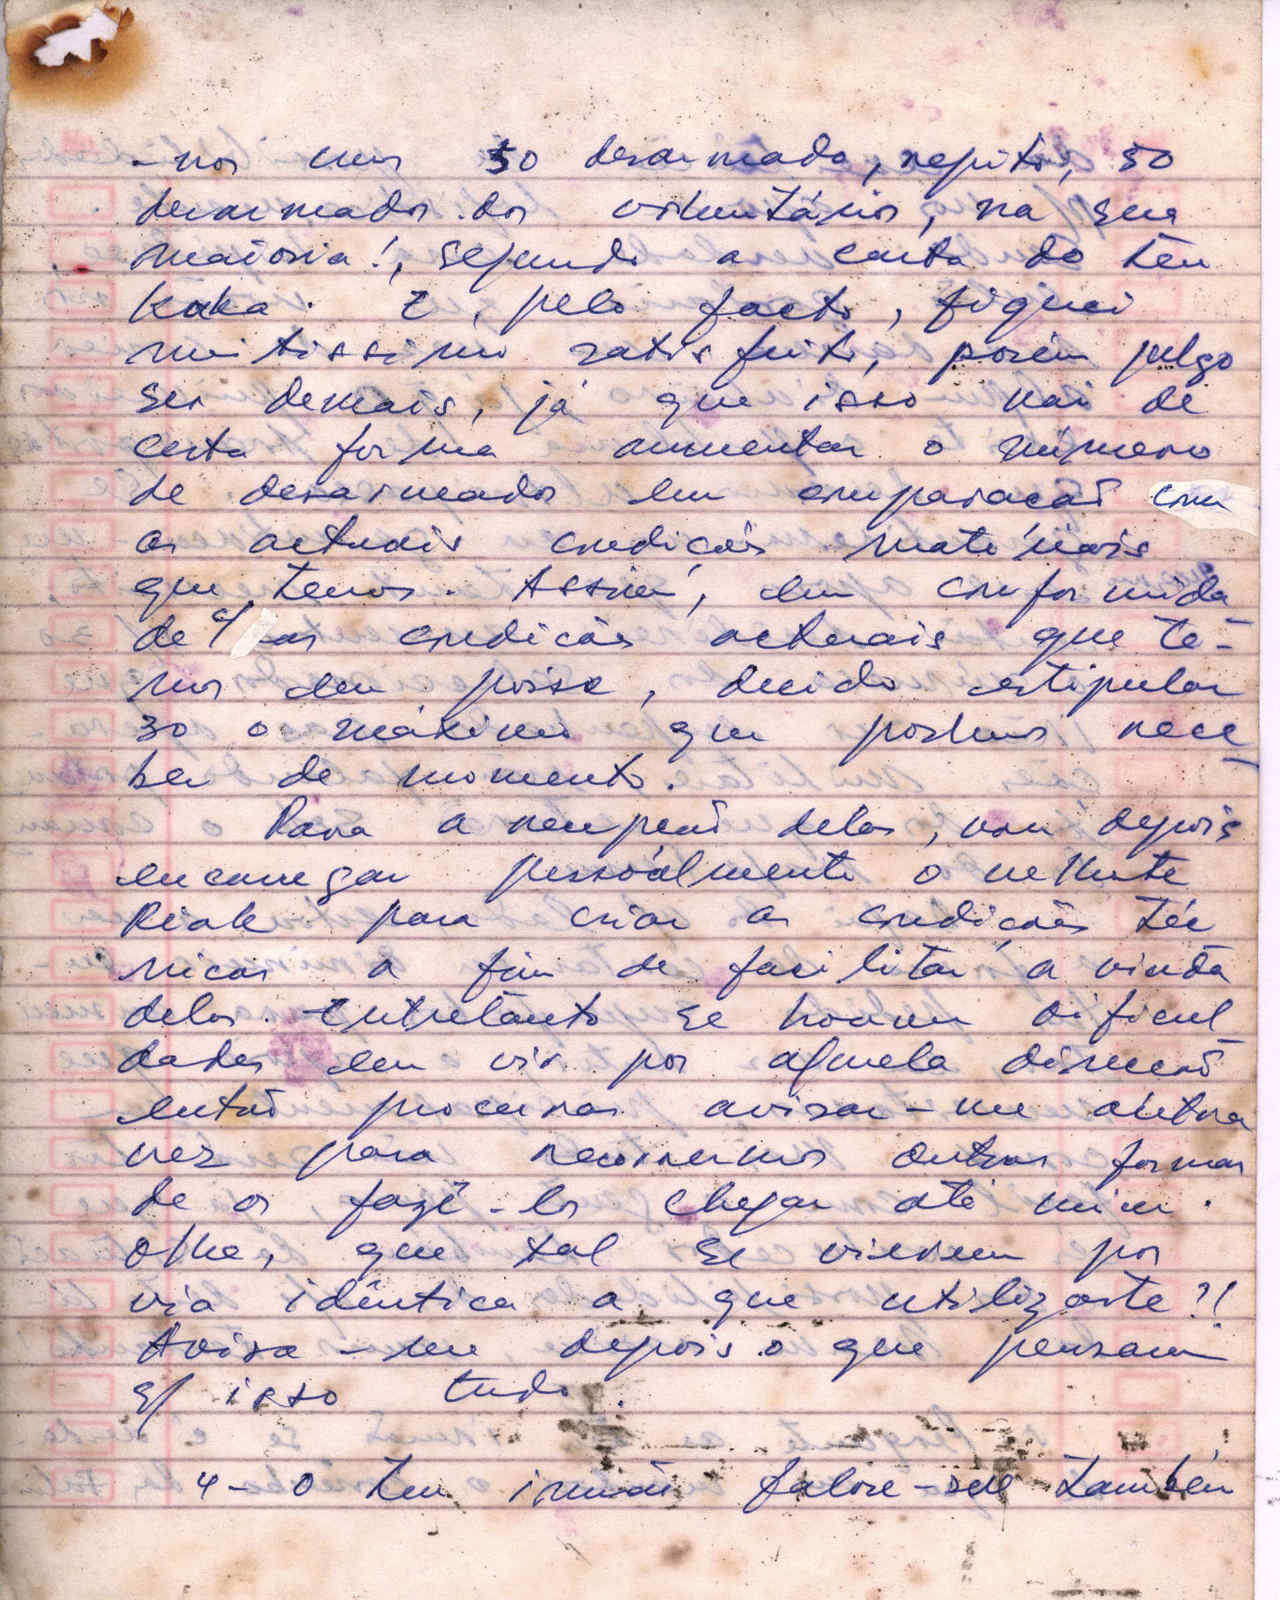 -nos uns 50 desarmado, repito, 50
desarmados dos voluntários, na sua
maioria!, segundo a carta do teu
Kaka. E, pelo facto, fiquei
muitissimo satisfeito, porém julgo
ser demais, já que isso vai de
certa forma aumentar o número
de desarmados em comparacaõ com
as actuais condiçoẽs matériais
que temos. Assim, em conformida
de c/ as condicoẽs actuais que te-
mos em posse, decido estipular
30 o máximo que podemos rece
ber de momento.
Para a recepçaõ deles, vou depois
encarregar pessoálmente o velhote
Riak para criar as condiçoẽs téc
nicas a fim de facilitar a vinda
deles. Entretanto se houver dificul
dades em vir por aquela direcçaõ
entaõ procuras avisar-me outra
vez para recorrermos outras formas
de os fazê-los chegar até mim.
Olhe, que tal se vierem por
via idêntica a que utilizaste?!
Avisa-me depois o que pensam
s/ isso tudo.
4-O teu irmaõ falou-me também